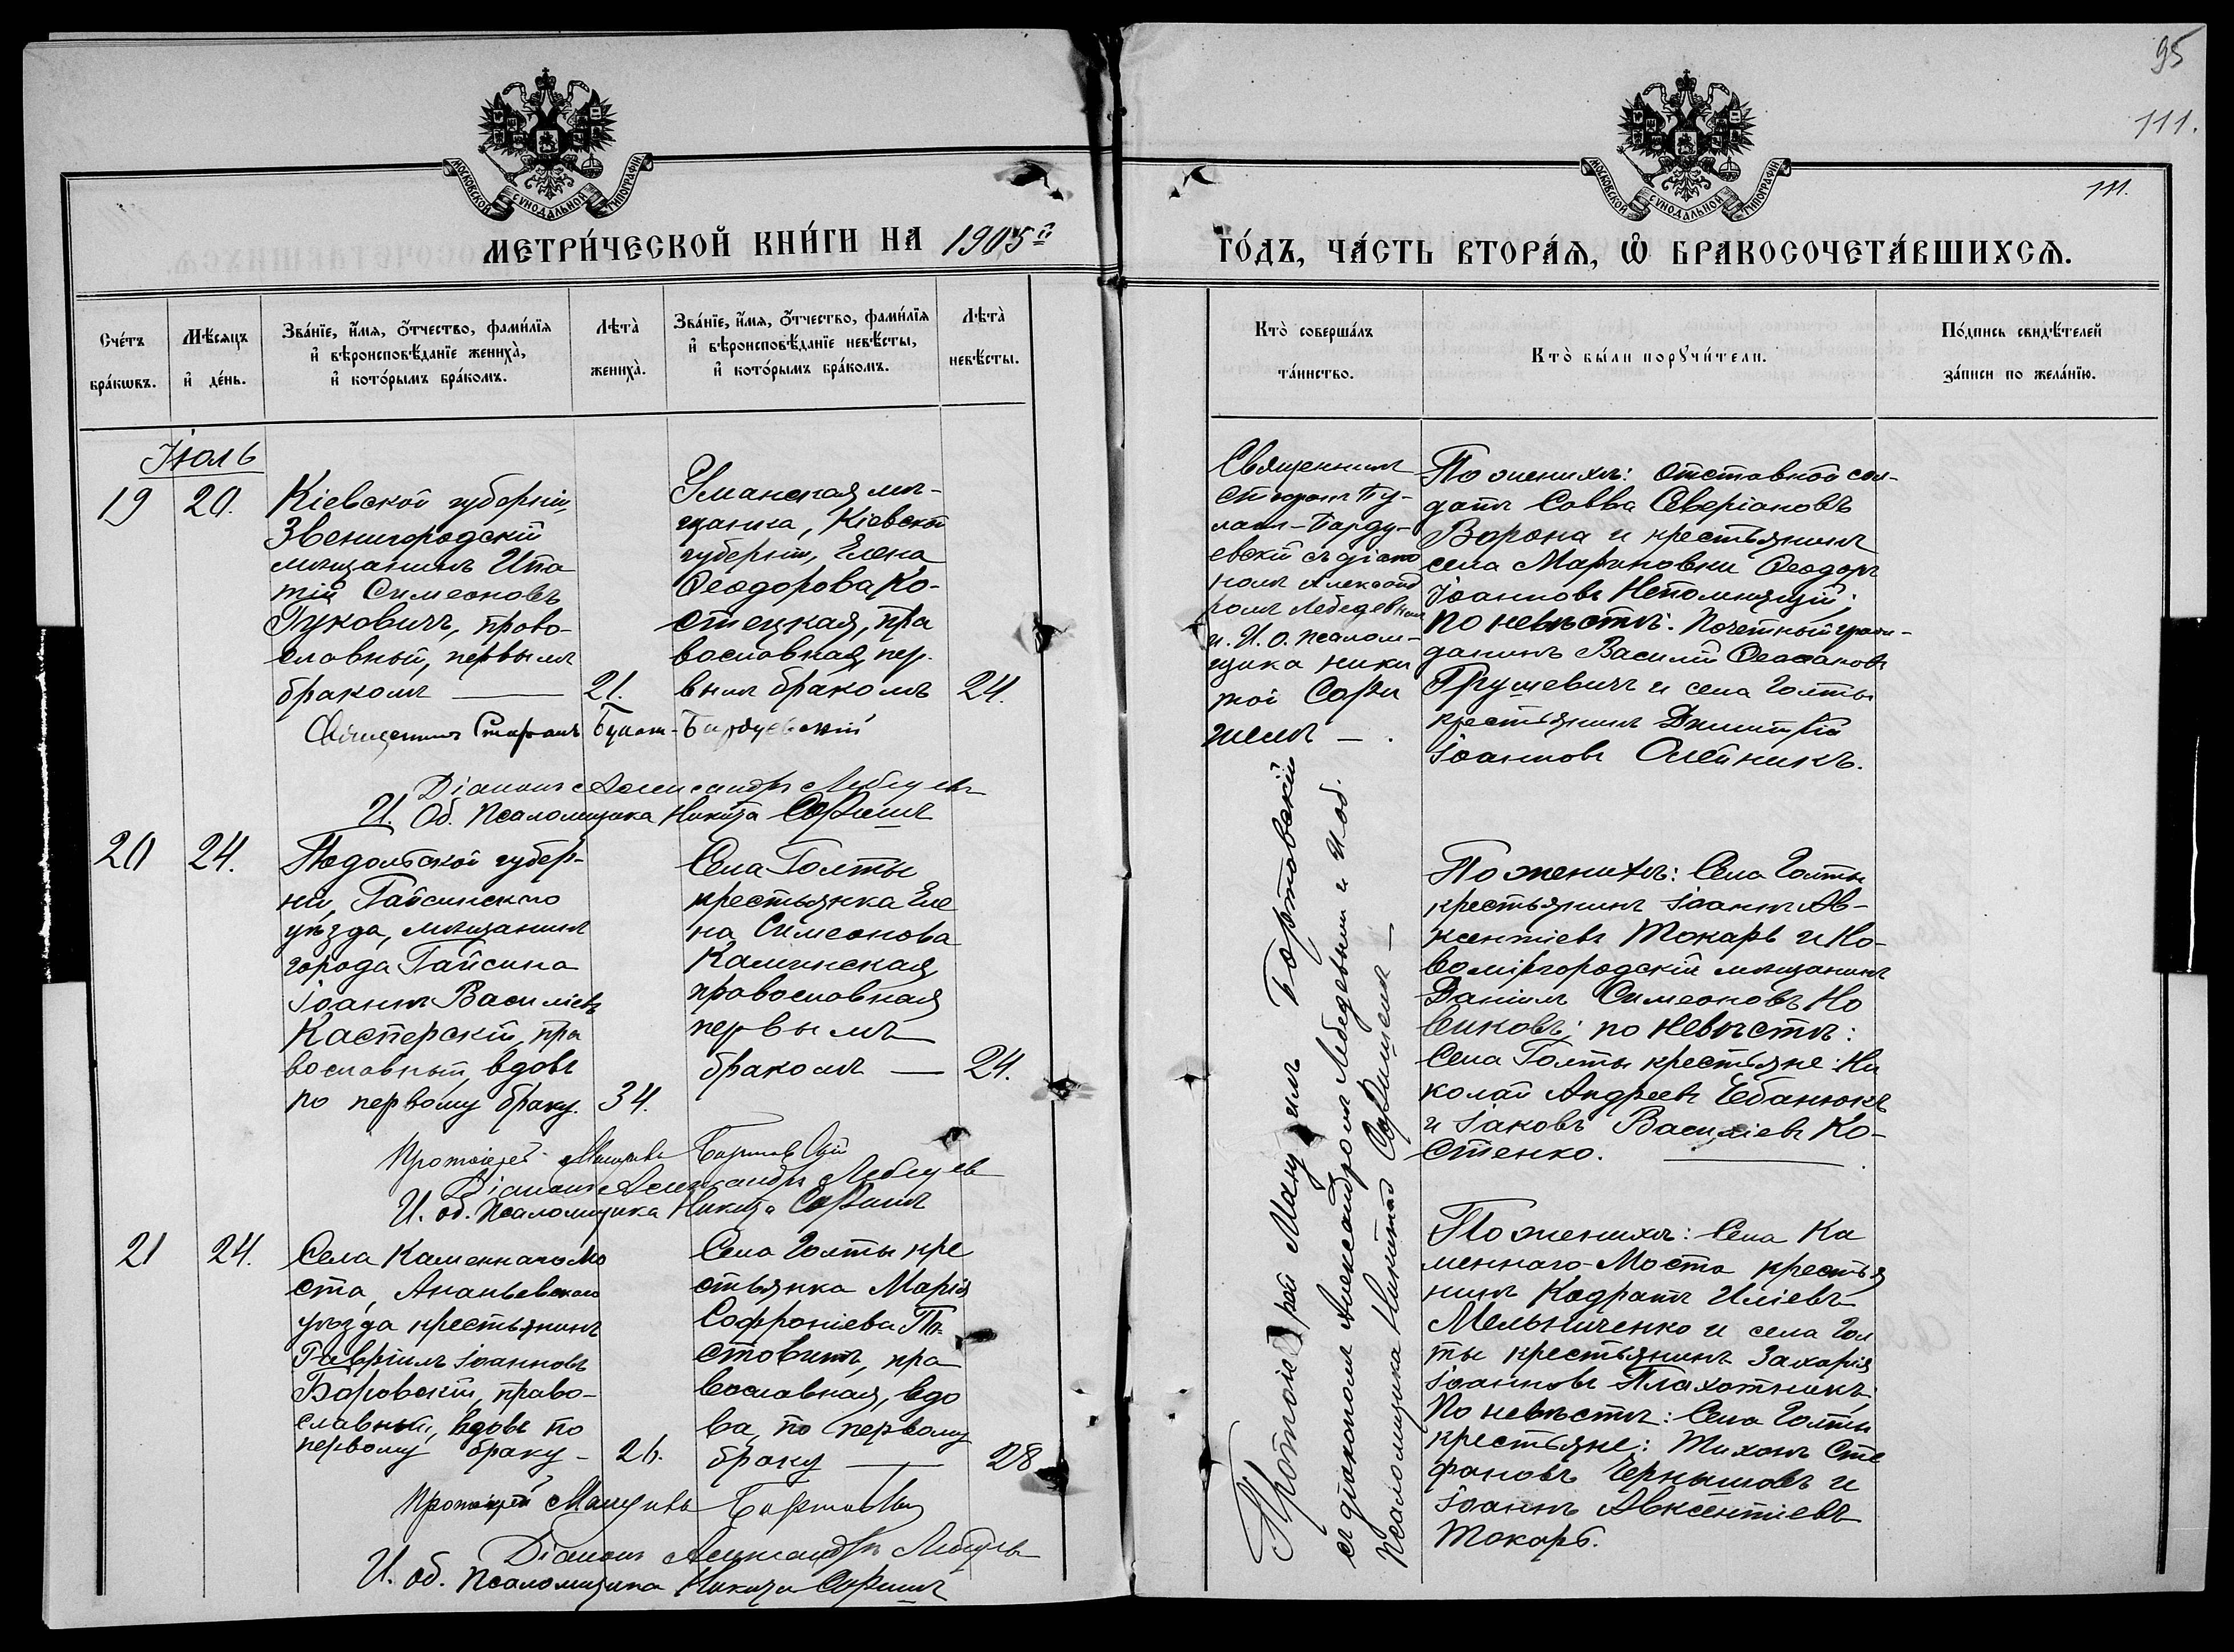 95
111.
111.
МОСКОВСКОЙ СѴНОДАЛЬНОЙ ТИПОГРАФІИ
МОСКОВСКОЙ СѴНОДАЛЬНОЙ ТИПОГРАФІИ
МЕТРИ́ЧЕСКОЙ КНИ́ГИ НА 1905й
ГО́ДЪ, ЧА́СТЬ ВТОРА́Я, Ѡ҆ БРАКОСОЧЕТА́ВШИХСЯ.
Сче́тъ
бра́кѡвъ.
Мѣ́сяцъ
и҆ де́нь.
Зва́нїе, и҆́мя, ѻ҆́тчество, фами́лїя
и҆ вѣроисповѣ́данїе жениха̀,
и҆ кото́рымъ бра́комъ.
Лѣта̀
жениха̀.
Зва́нїе, и҆́мя, ѻ҆́тчество, фами́лїя
и҆ вѣроисповѣ́данїе невѣ́сты,
и҆ кото́рымъ бра́комъ.
Лѣта̀
невѣ́сты.
Кто̀ соверша́лъ
та́инство.
Кто̀ бы́ли порꙋчи́тели.
По́дпись свидѣ́телей
за́писи по жела́нїю.
Іюль
19
20.
Кіевской губерніи,
Звенигородскій
мѣщанинъ Ипа
тій Симеоновъ
Гуковичъ, право-
славный, первымъ
бракомъ —
21.
Уманская мѣ-
щанка, Кіевской
губерніи, Елена
Ѳеодорова Ко-
стецкая, пра
вославная, пер-
вымъ бракомъ
24.
Священникъ
Стефанъ Бу-
лат-Барду-
евскій съ діако
номъ Александ
ромъ Лебедевымъ
и И. о. псалом-
щика Ники
той Софи
шемъ — .
По женихѣ: отставной сол-
датъ Савва Северіановъ
Ворона и крестьянинъ
села Мариновки Ѳеодоръ
Іоанновъ Непомнящій;
по невѣстѣ: Почетный граж-
данинъ Василій
Грушевичъ и села Голты
крестьянинъ Димитрій
Іоанновъ Олейникъ.
Священникъ Стефанъ
Діаконъ Александръ Лебедевъ
И. Об. Псаломщика Никита Софишъ
20
24.
Подольской губер-
ніи, Гайсинскаго
уѣзда, мѣщанинъ
города Гайсина
Іоаннъ Василіевъ
Касперскій, пра
вославный, вдовъ
по первому браку.
34.
Села Голты
крестьянка Еле
на Симеонова
Калинская,
православная
первымъ
бракомъ —
24.
Протоіерей Мануилъ Бортовскій
съ діакономъ Александромъ Лебедевымъ и И об.
псаломщика Никитой Софишемъ —
По женихѣ: Села Голты
крестьянинъ Іоаннъ Ав-
ксентіевъ Токарь и Но-
воміргородскій мѣщанинъ
Даніилъ Симеоновъ Но
виковъ; по невѣстѣ:
Села Голты крестьяне: Ни
колай Андреевъ Чебанюкъ
и Іаковъ Василіевъ Ко-
стенко.
Протоіерей Мануилъ Бортовскій
Діаконъ Александръ Лебедев
И. об. Псаломщика Никита Софишъ
21
24.
Села Каменнаго Мо
ста, Ананьевскаго
уѣзда крестьянинъ
Гавріилъ Іоанновъ
Боровскій, право-
славный, вдовъ по
первому браку —
26.
Села Голты кре
стьянка Марія
Софроніева По
стовитъ, пра
вославная, вдо
ва, по первому
браку —
28
По женихѣ: Села Ка
меннаго-Моста крестья
нинъ Кодратъ Иліевъ
Мельниченко и села Гол
ты крестьянинъ Захарія
Іоанновъ Плахотникъ;
По невѣстѣ: Села Голты
крестьяне: Тихонъ Сте
фановъ Чернышовъ и
Іоаннъ Авксентіевъ
Токарь.
Протоіерей Мануилъ Бортовскій
Діаконъ Александръ Лебедевъ
И. об. Псаломщика Никита Софишъ